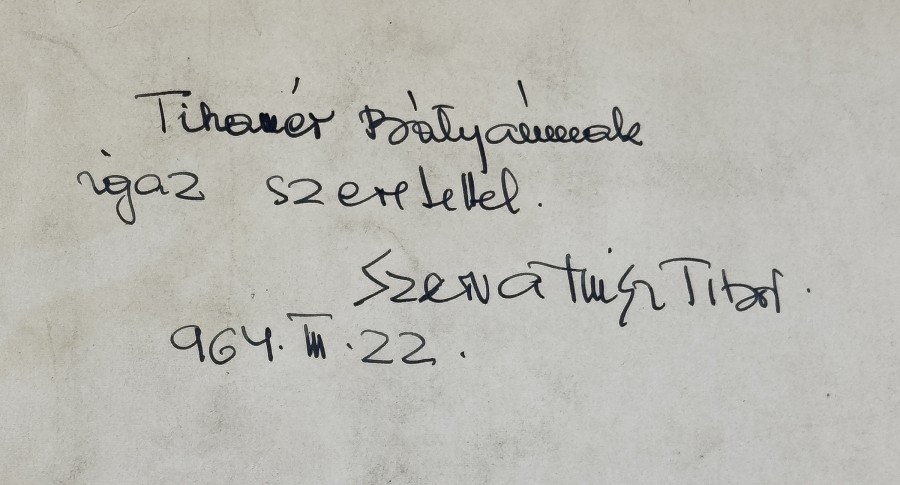 Tihamér Bátyámnak
igaz szeretettel.
Szervátiusz Tibor.
964. III. 22.